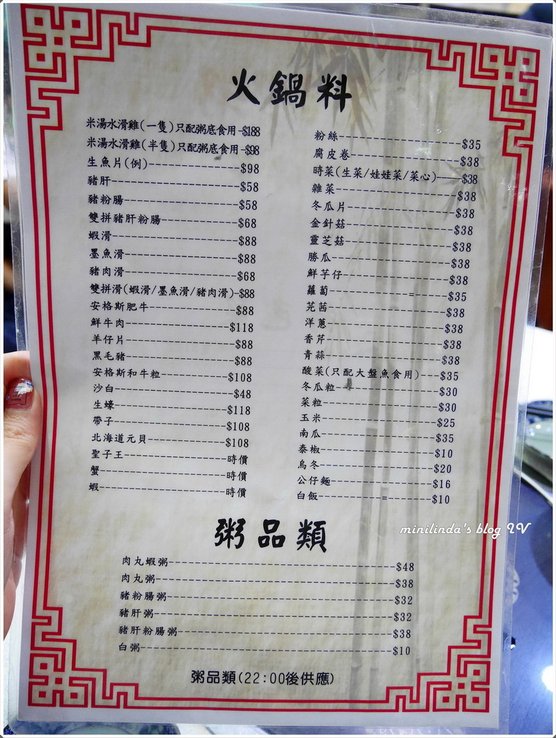 火鍋料
米湯水滑雞(一隻)只配粥底食用-$188
米湯水滑雞(半隻)只配粥底食用-$98
生魚片(例)-----------$98
豬肝-----------$58
豬粉腸-----------$58
雙拼豬肝粉腸-----------$68
蝦滑-----------$88
墨魚滑-----------$88
豬肉滑-----------$68
雙拼滑(蝦滑/墨魚滑/豬肉滑)-$88
安格斯肥牛-----------$88
鮮牛肉-----------$118
羊仔片-----------$88
黑毛豬-----------$88
安格斯和牛粒-----------$108
沙白-----------$48
生蠔-----------$118
帶子-----------$108
北海道元貝-----------$108
聖子王-----------時價
蟹-----------時價
蝦-----------時價
粉絲-----------$35
腐皮卷-----------$38
時菜(生菜/娃娃菜/菜心)----$38
雜菜-----------$38
冬瓜片-----------$38
金針菇-----------$38
靈芝菇-----------$38
勝瓜-----------$38
鮮芋仔-----------$38
蘿蔔-----------$35
芫茜-----------$38
洋蔥-----------$38
香芹-----------$38
青蒜-----------$38
酸菜(只配大盤魚食用)----$35
冬瓜粒-----------$30
菜粒-----------$30
玉米-----------$25
南瓜-----------$35
泰椒-----------$10
烏冬-----------$20
公仔麵-----------$16
白飯-----------$10
minilinda's blog IV
粥品類
肉丸蝦粥-----------$48
肉丸粥-----------$38
豬粉腸粥-----------$32
豬肝粥-----------$32
豬肝粉腸粥-----------$38
白粥-----------$10
粥品類(22:00後供應)